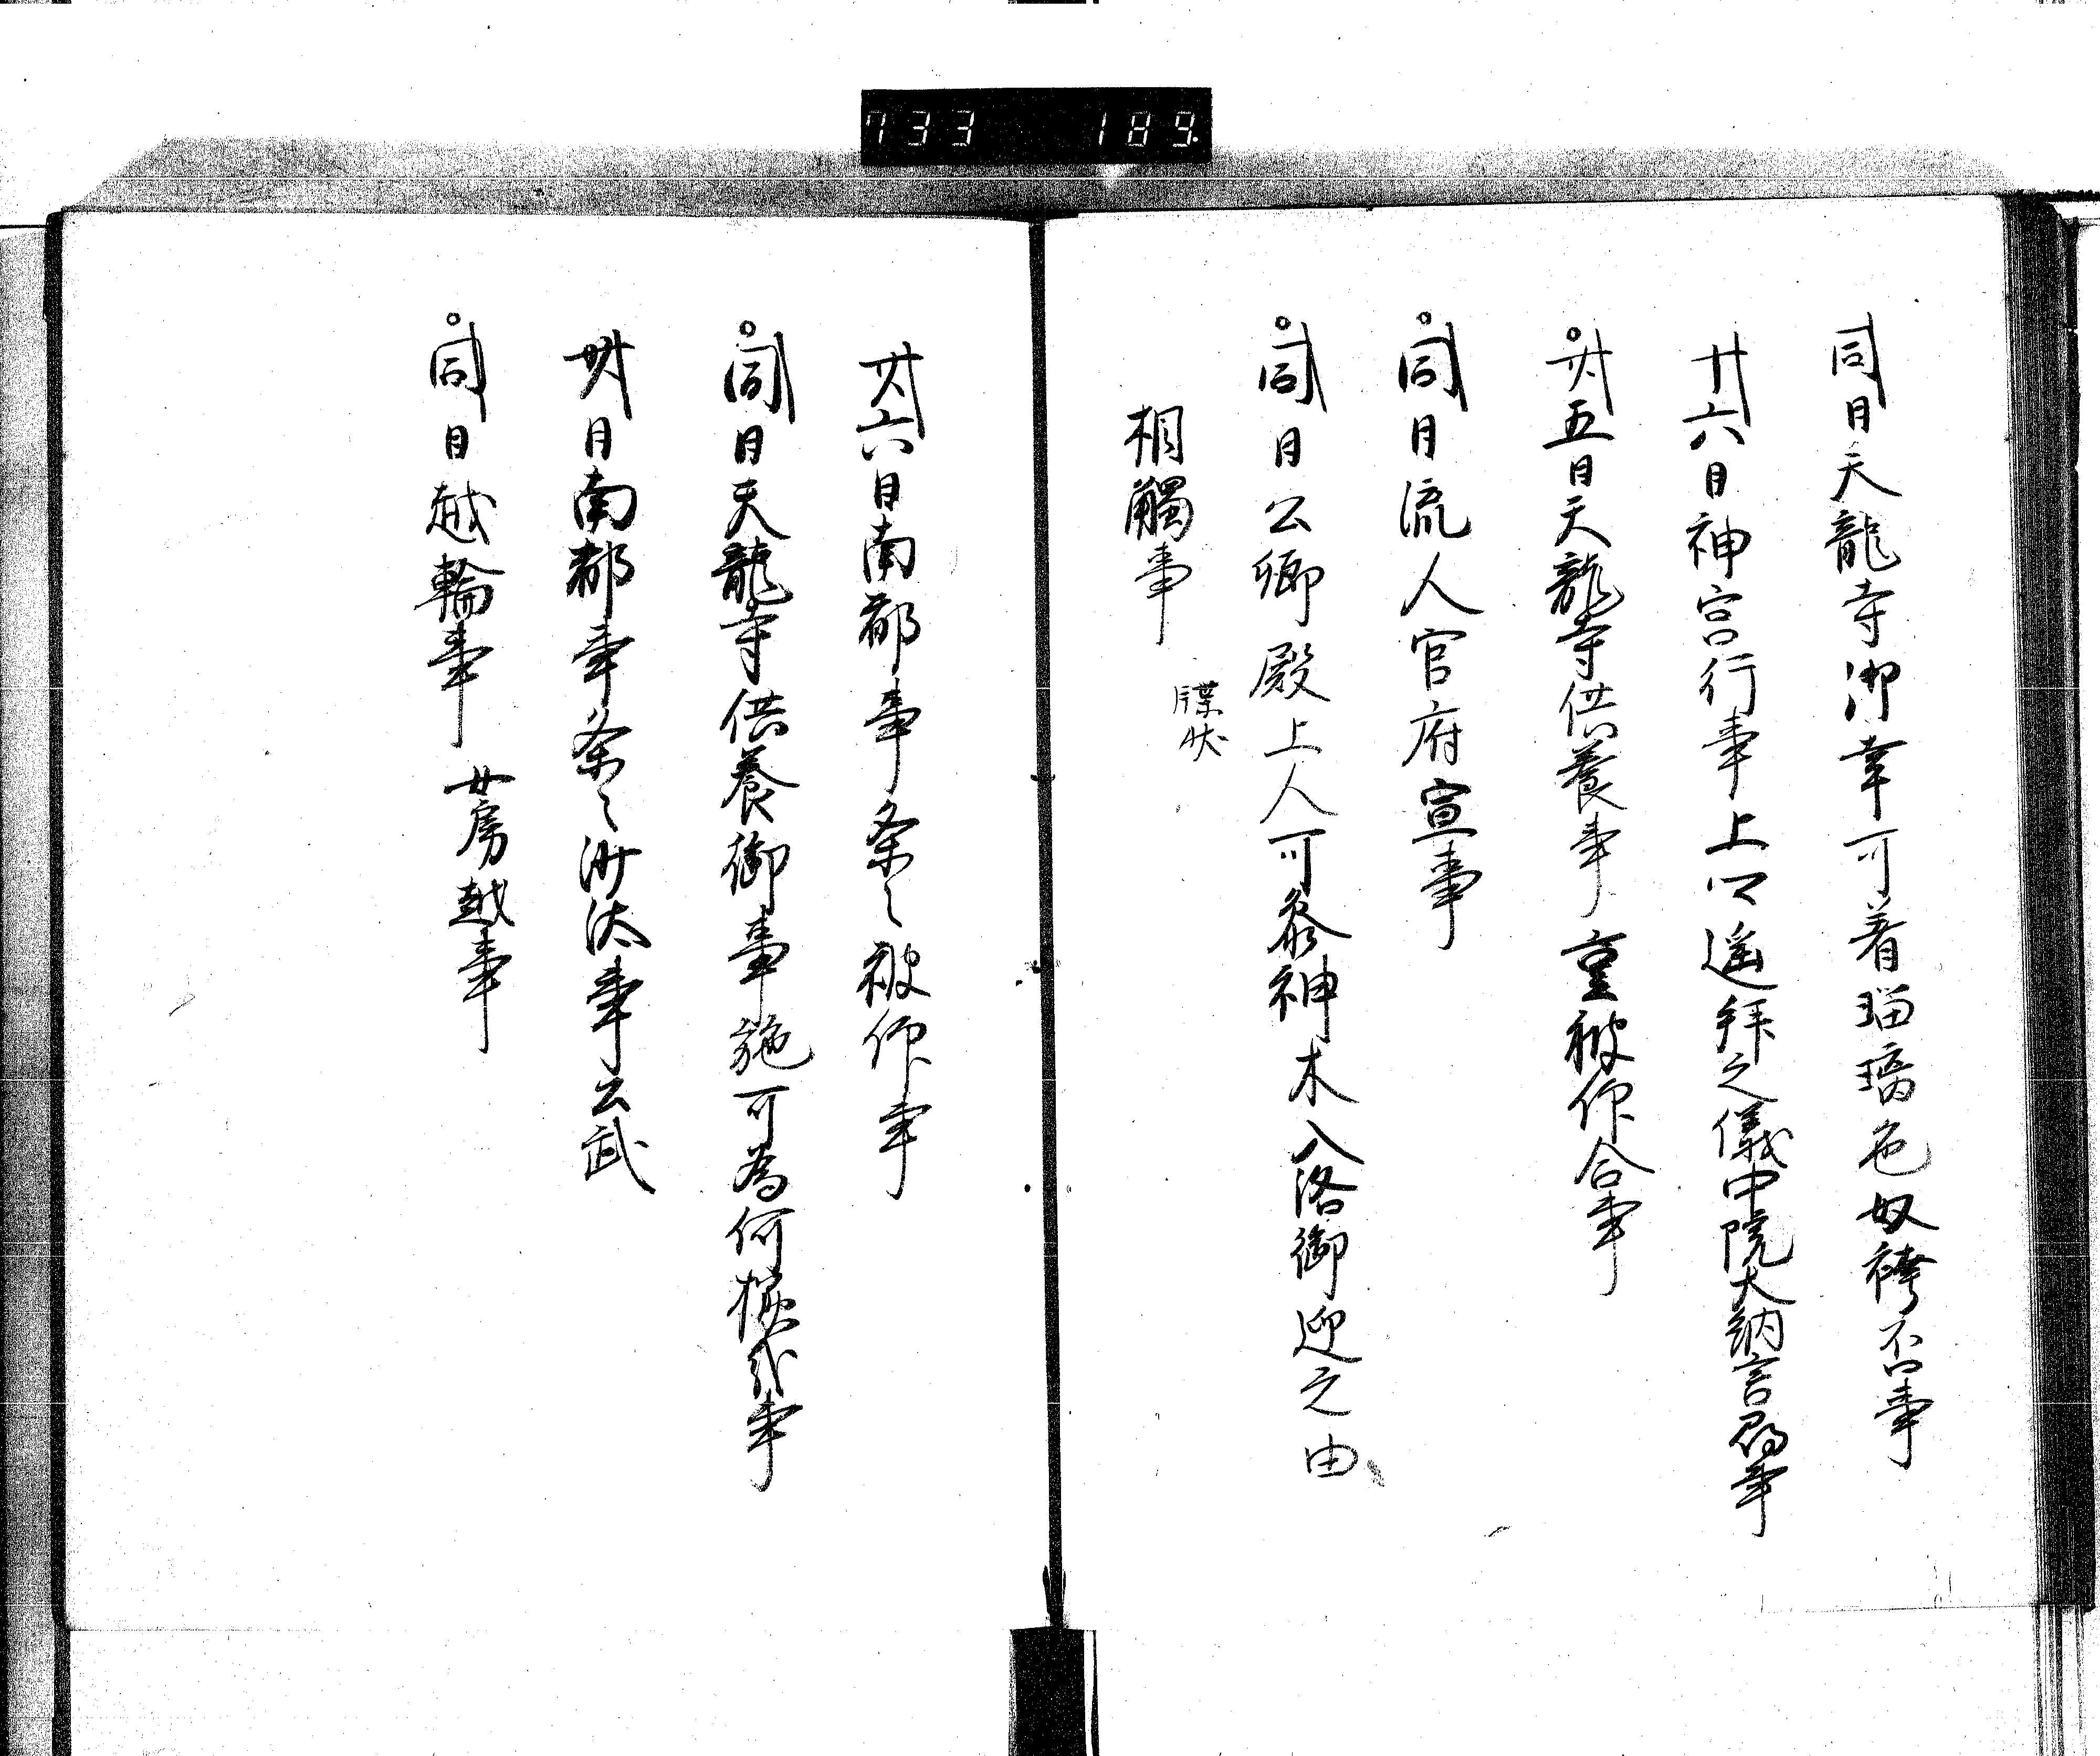 733 189.
同日天龍寺御幸可着瑠璃色奴袴否事
廿六日神宮行事上以遥拝之儀中院大納言事
廿五日天龍寺供養事重被仰合事
同日流人官府宣事
同日公卿殿上人可参神木入洛御迎之由
相觸事
牒状
廿六日南都事条々被仰事
同日天龍寺供養御事施可為何様哉事
日南都事条々沙汰事公武
同日越輪事 女房越事